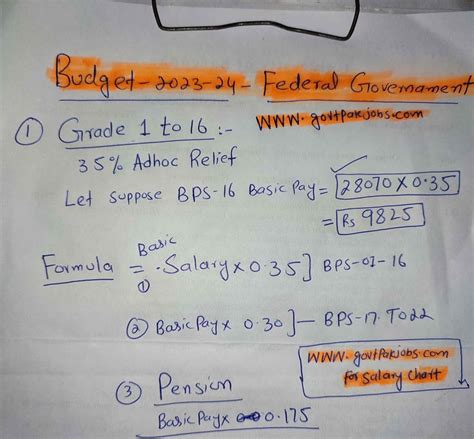 Budget-2023-24-Federal Governament
① Grade 1 to 16 :-
WWW.govtPakjobs.com
35% Adhoc Relief
Let suppose BPS-16 Basic Pay= 28070 X 0.35
= Rs 9825
Basic
Formula = ① Salary x 0.35] BPS-01-16
② Basic Pay x 0.30]- BPS-17. To 22
WWW.govtPakjobs.com
for Salary Chart
③ Pension
Basic Pay x 0.175